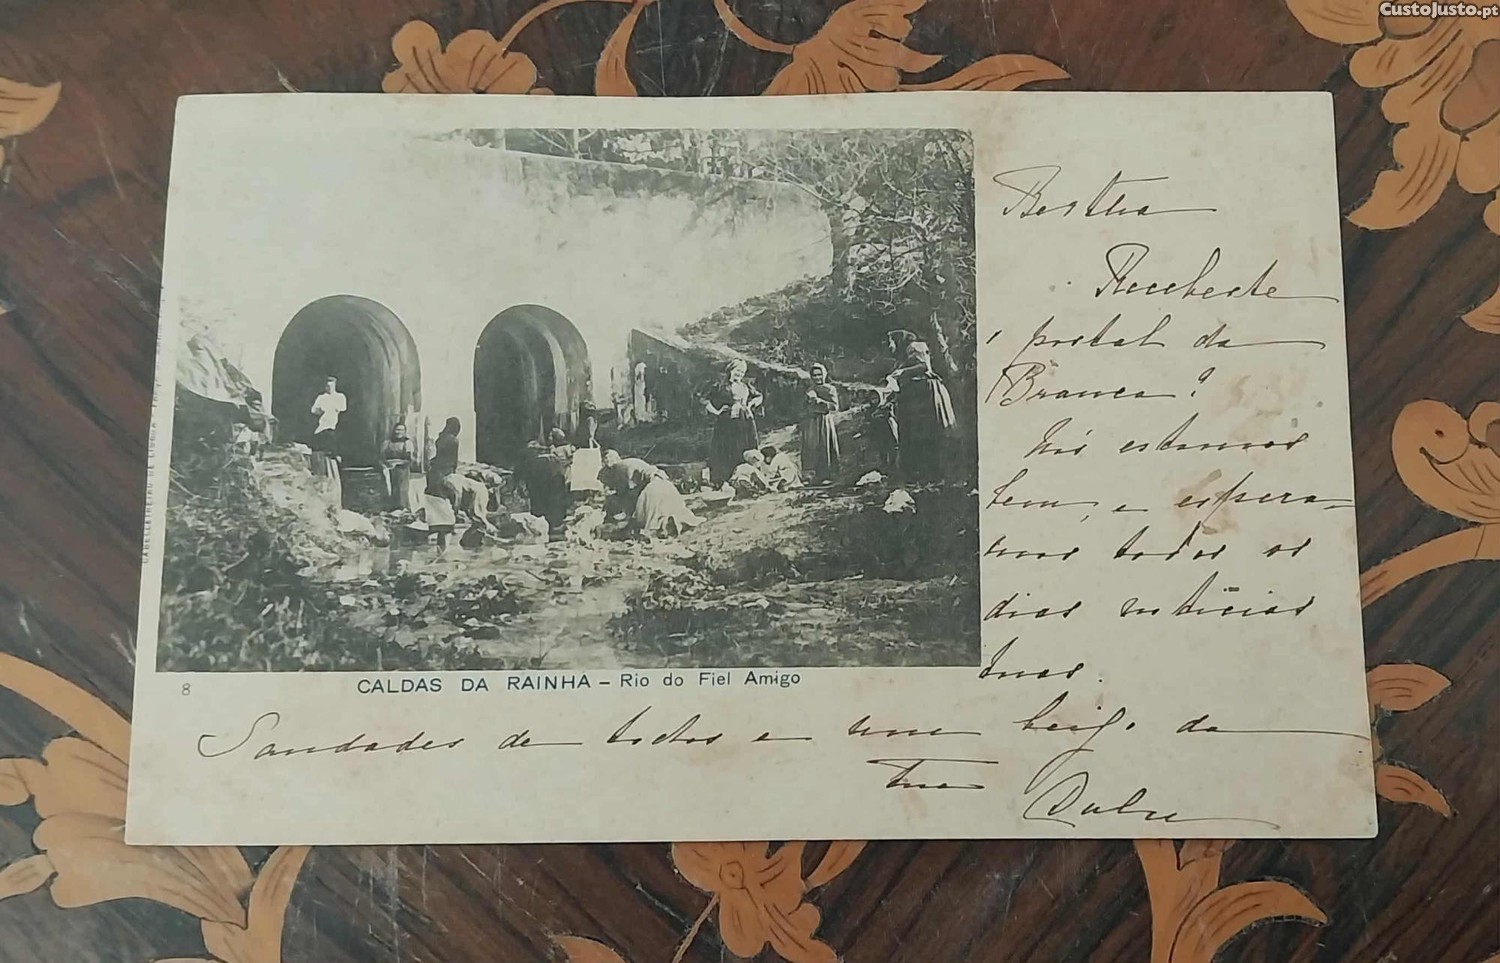 CustoJusto.pt
Bertha
Recebeste
o postal da
Branca?
Nós estamos
bem, e espera-
mos todos os
dias noticias
tuas.
8
CALDAS DA RAINHA – Rio do Fiel Amigo
Saudades de todos e um beijo da
tua
Dulce